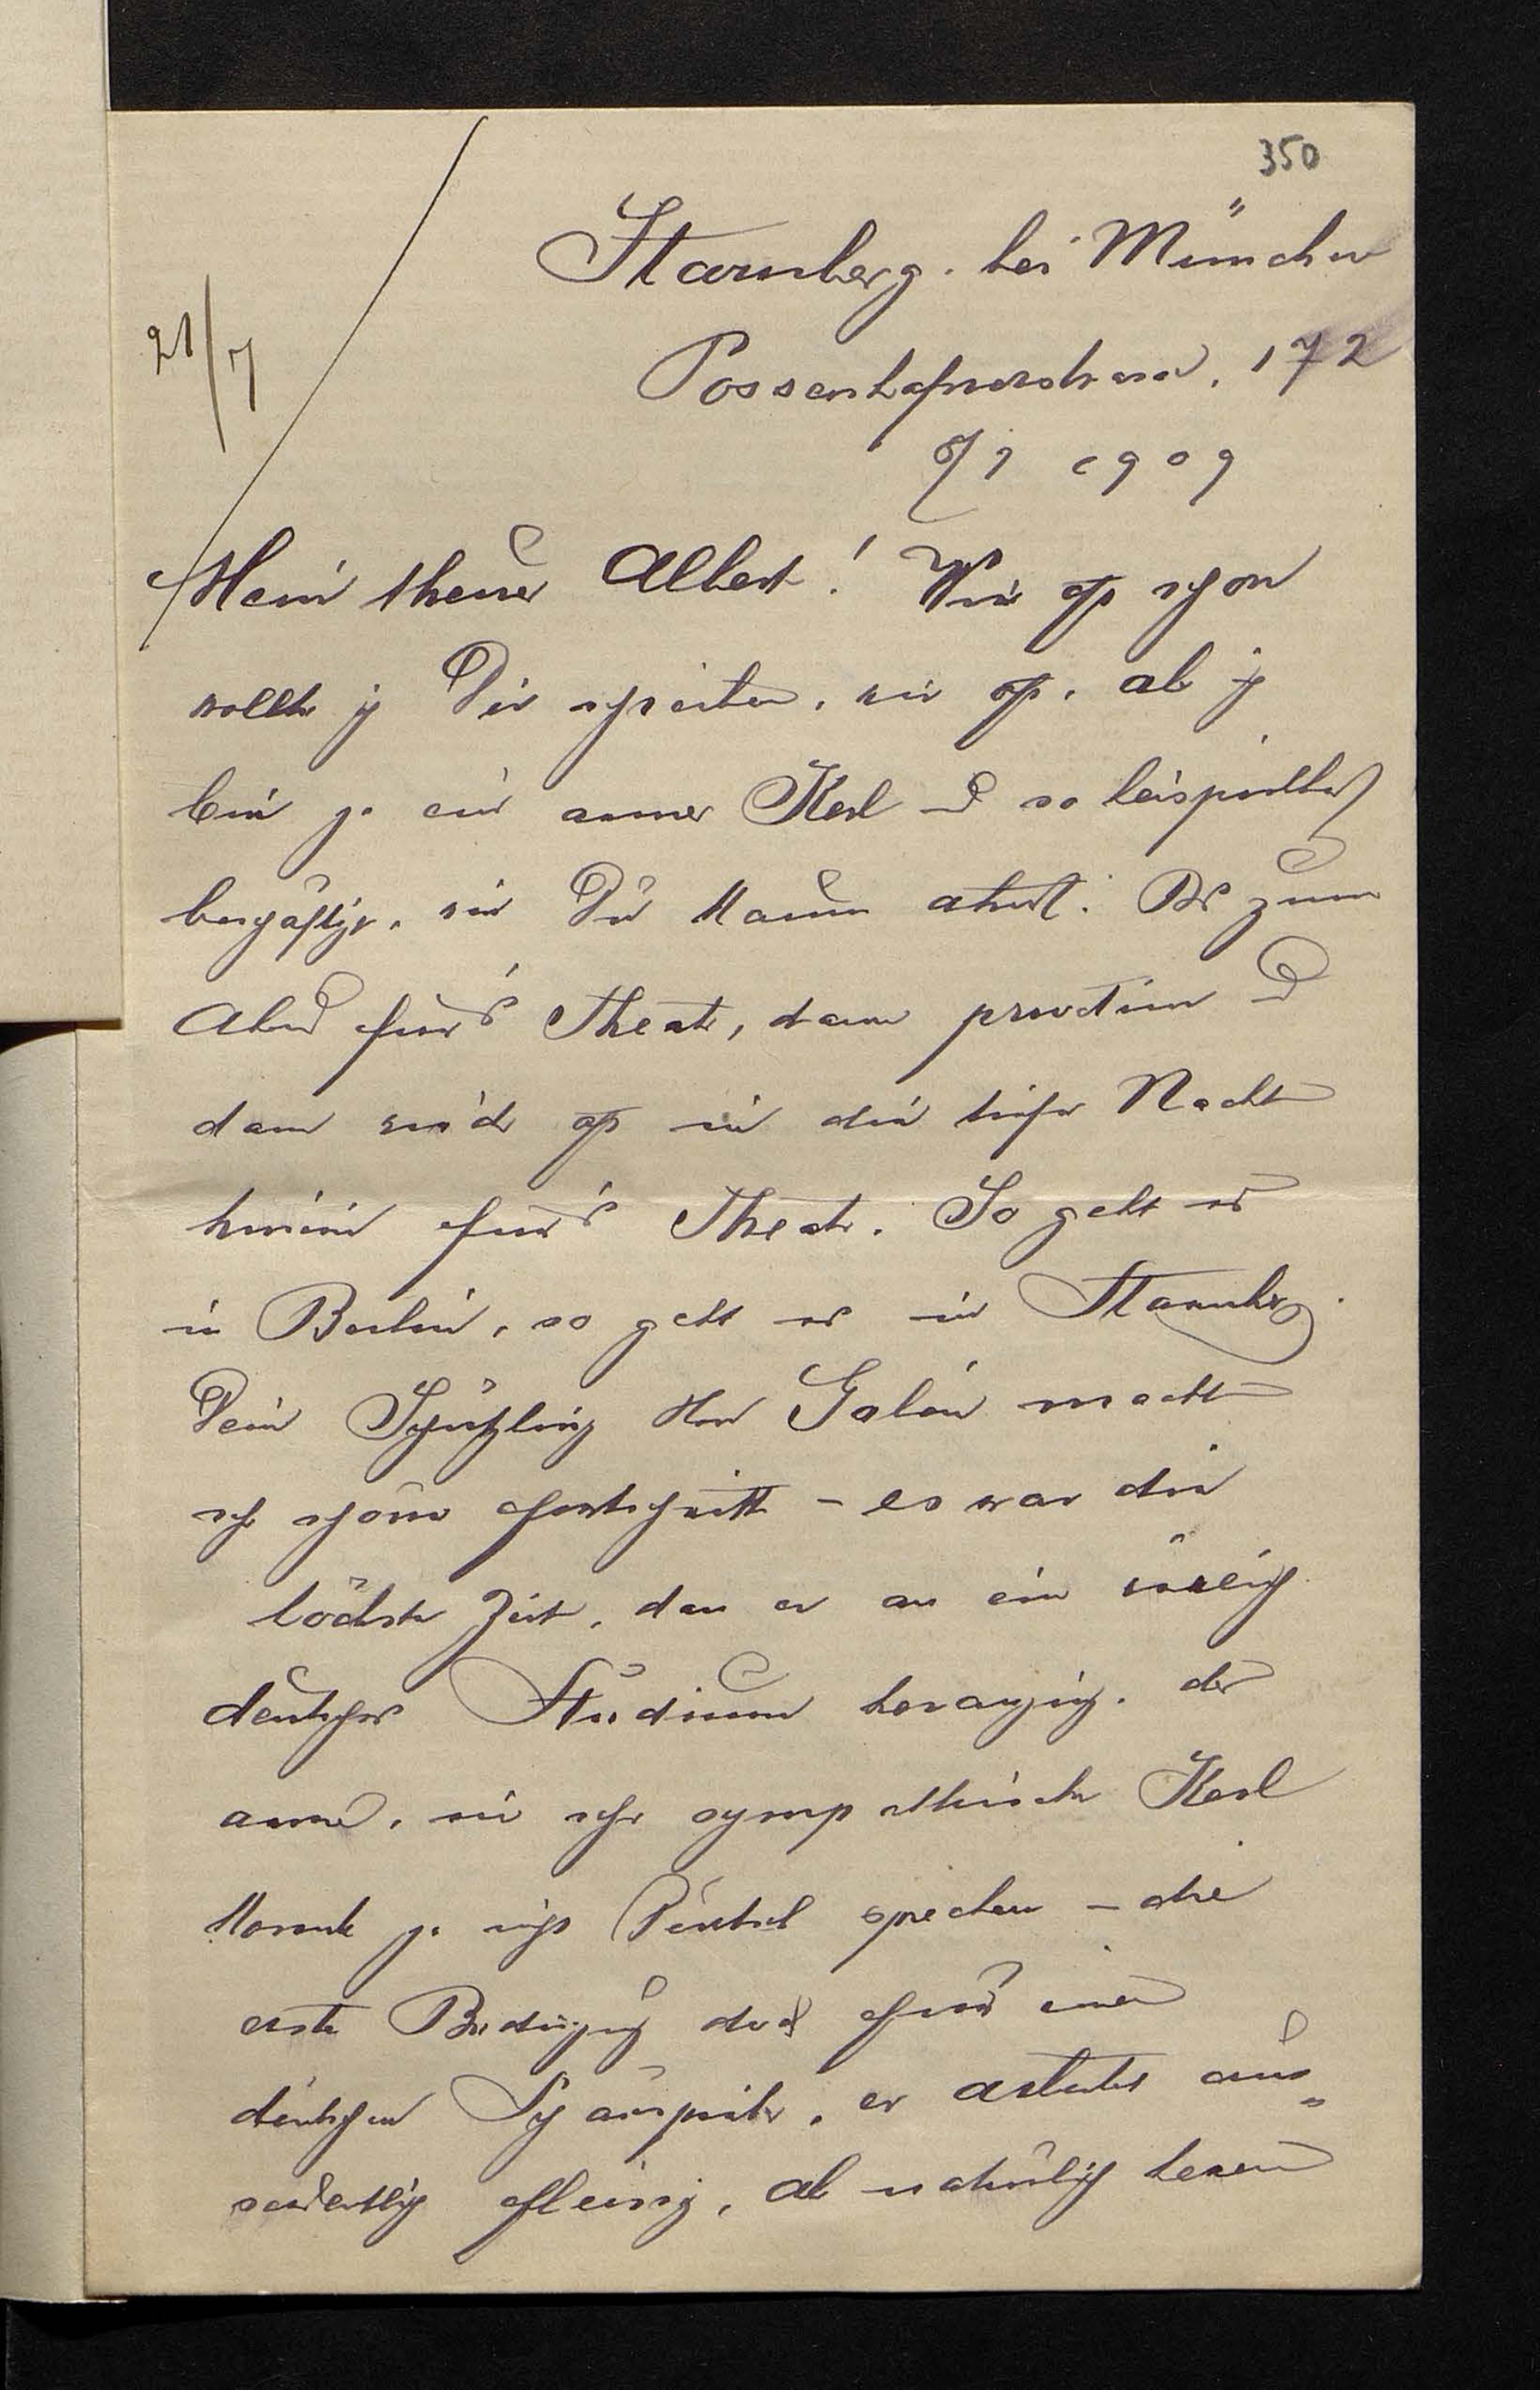 350
Starnberg bei München
Possenhofnerstrasse 172
21/7
8/7 1909
Mein theurer Albert! Wie oft schon
wollte ich Dir schreiben, wie oft, aber ich
bin ja ein armer Kerl und so beispiellos
beschäftigt, wie Du kaum ahnst. Bis zum
Abend fürs Theater, dann privatim und
dann wieder oft in die tiefe Nacht
hinein fürs Theater. So geht es
in Berlin, so geht es in Starnberg.
Dein Schützling Herr Galén macht
sehr schöne Fortschritte – es war die
höchste Zeit, dass er an ein
deutsches Studium heranging. der
arme, mir sehr sympathische Kerl
konnte ja nicht Deutsch sprechen – die
erste Bedingung doch für einen
deutschen Schauspieler, er arbeitet aus=
serordentlich fleissig, aber natürlich